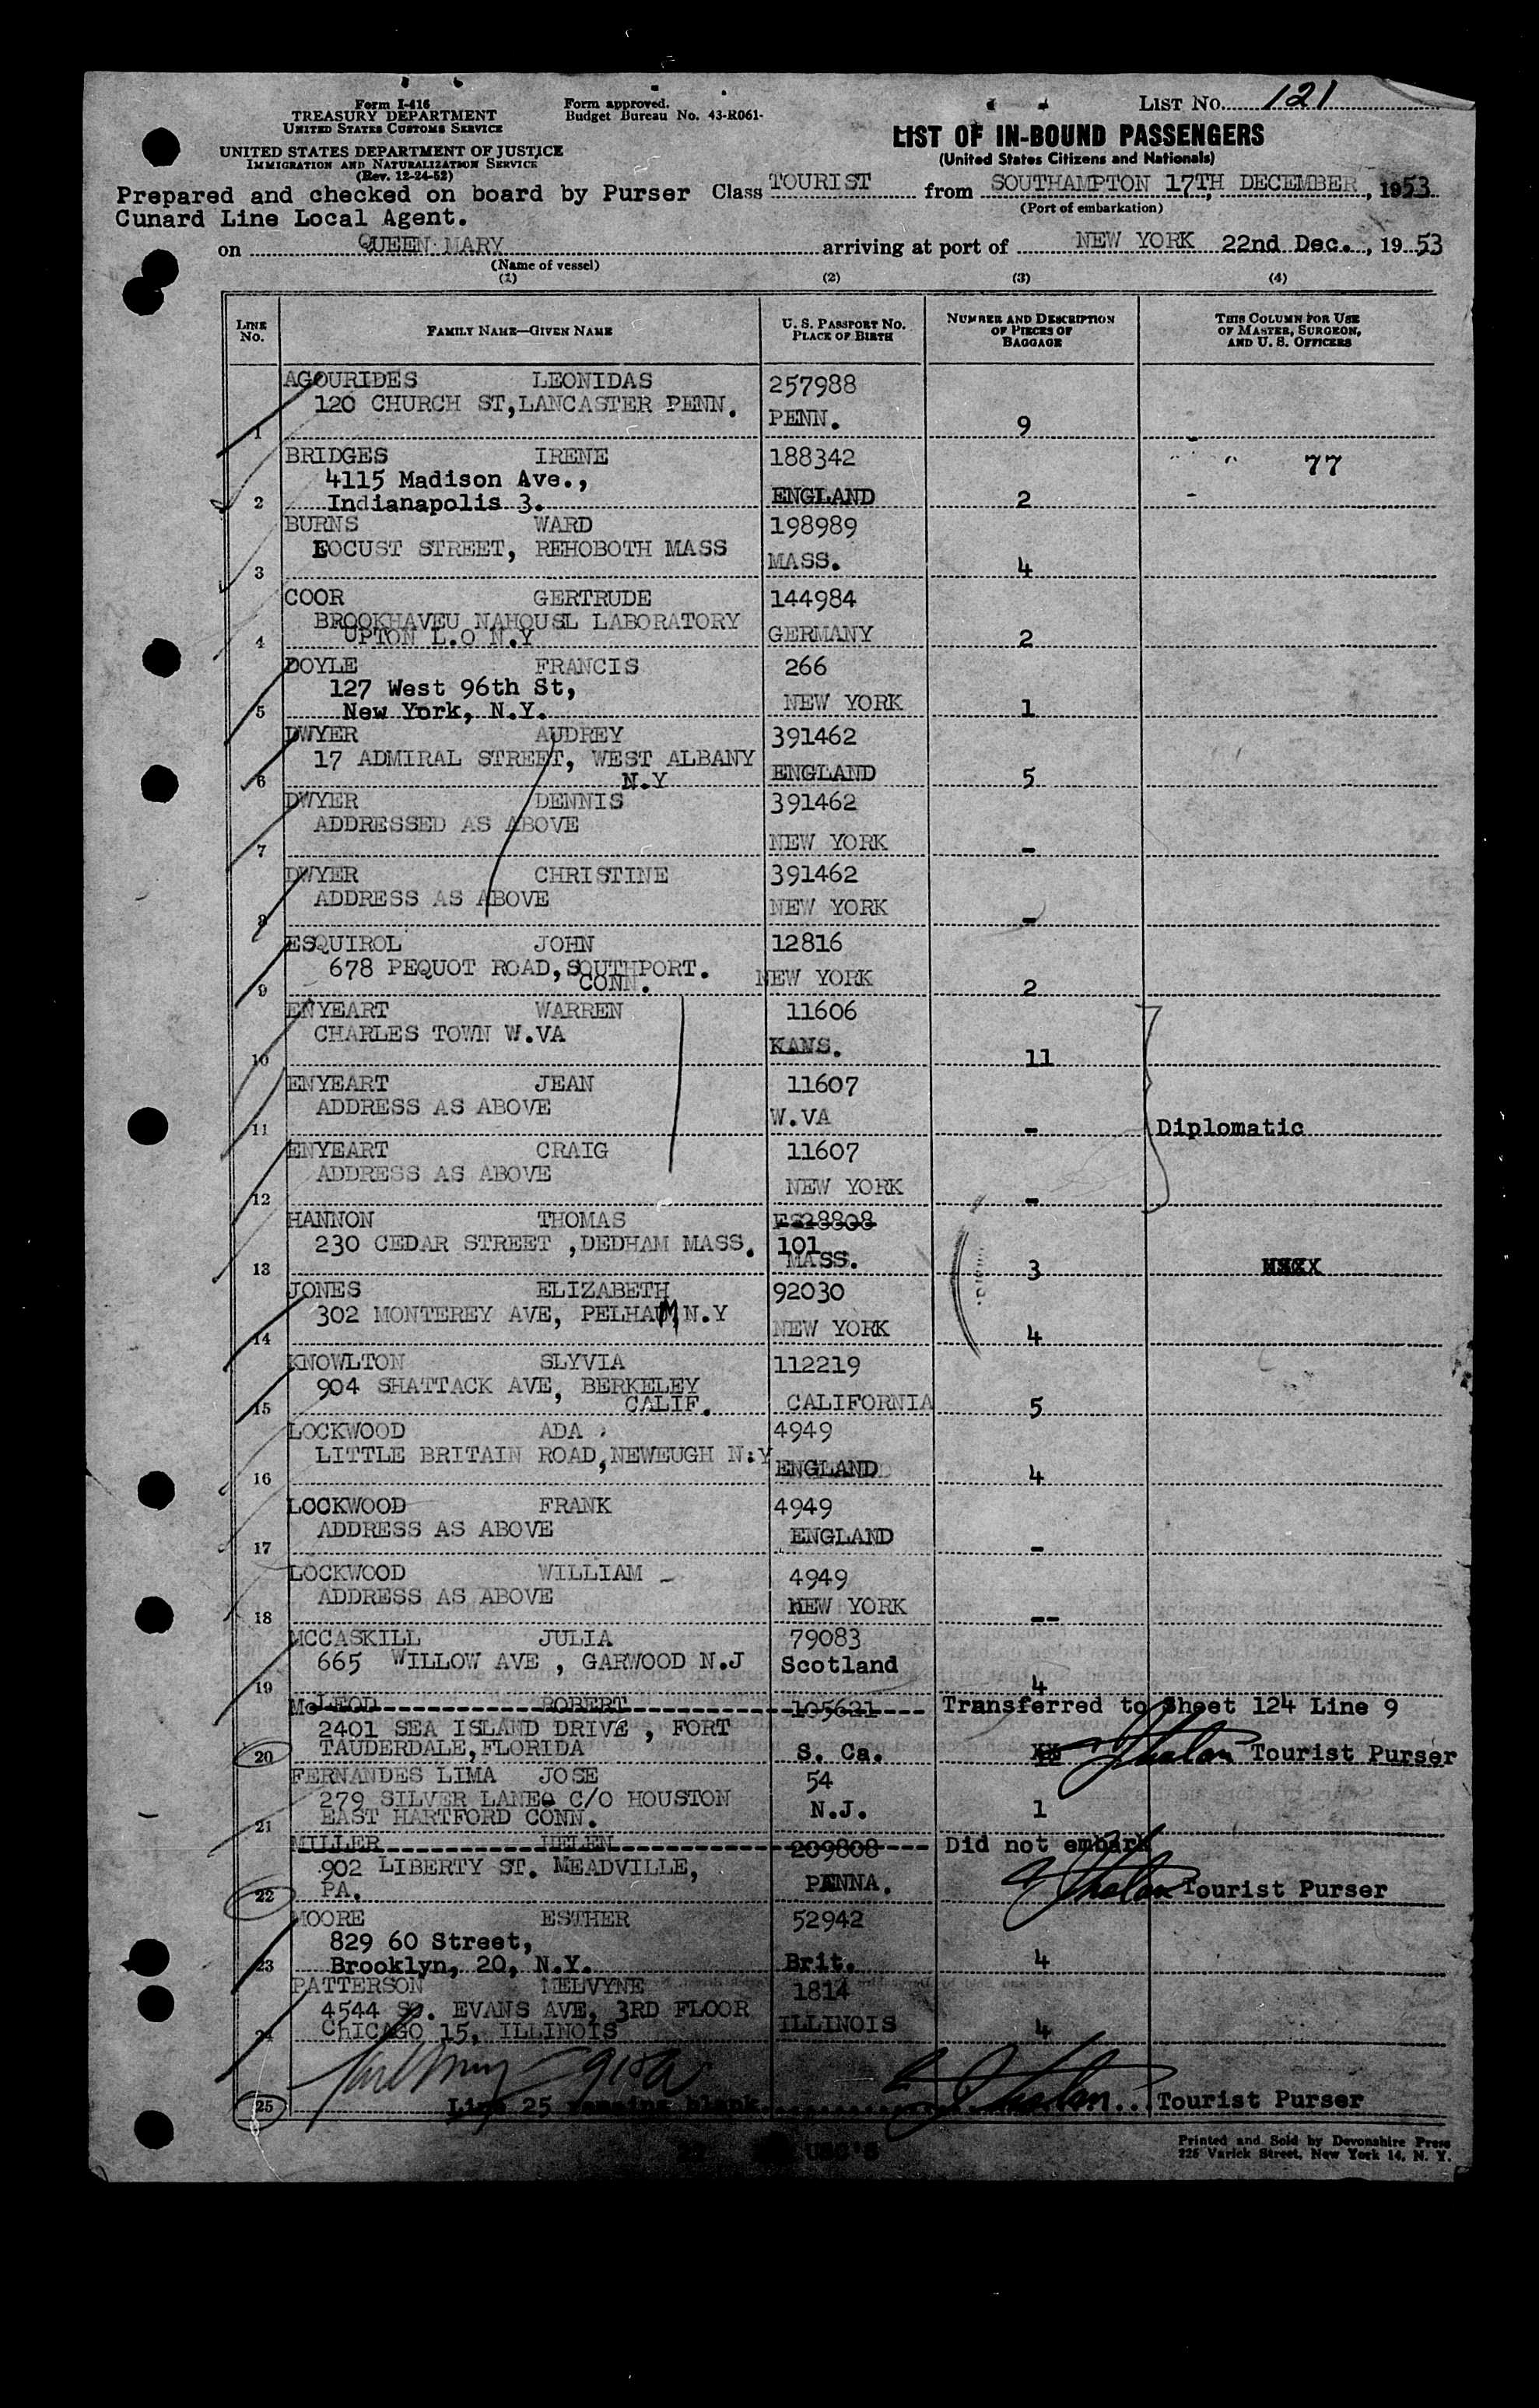 Form I-416
TREASURY DEPARTMENT
UNITED STATES CUSTOMS SERVICE
UNITED STATES DEPARTMENT OF JUSTICE
IMMIGRATION AND NATURALIZATION SERVICE
(Rev. 12-24-52)
Form approved.
Budget Bureau No. 43-R061-
LIST No. 121
LIST OF IN-BOUND PASSENGERS
(United States Citizens and Nationals)
Prepared and checked on board by Purser Class TOURIST from SOUTHAMPTON 17TH DECEMBER, 1953
Cunard Line Local Agent.
(Port of embarkation)
on QUEEN MARY arriving at port of NEW YORK 22nd Dec., 1953
(Name of vessel)
(1) (2) (3) (4)
LINE No.
FAMILY NAME—GIVEN NAME
U. S. PASSPORT No. PLACE OF BIRTH
NUMBER AND DESCRIPTION OF PIECES OF BAGGAGE
THIS COLUMN FOR USE OF MASTER, SURGEON, AND U. S. OFFICERS
AGOURIDES LEONIDAS 257988
120 CHURCH ST, LANCASTER PENN.
1 PENN. 9
BRIDGES IRENE 188342 77
4115 Madison Ave.,
2 Indianapolis 3. ENGLAND 2
BURNS WARD 198989
LOCUST STREET, REHOBOTH MASS
3 MASS. 4
COOR GERTRUDE 144984
BROOKHAVEU NAHOUSL LABORATORY
4 UPTON L.O N.Y GERMANY 2
DOYLE FRANCIS 266
127 West 96th St,
5 New York, N.Y. NEW YORK 1
DWYER AUDREY 391462
17 ADMIRAL STREET, WEST ALBANY
6 N.Y ENGLAND 5
DWYER DENNIS 391462
ADDRESSED AS ABOVE
7 NEW YORK -
DWYER CHRISTINE 391462
ADDRESS AS ABOVE
8 NEW YORK -
ESQUIROL JOHN 12816
678 PEQUOT ROAD, SOUTHPORT.
9 CONN. NEW YORK 2
ENYEART WARREN 11606
CHARLES TOWN W.VA
10 KANS. 11
ENYEART JEAN 11607
ADDRESS AS ABOVE
11 W.VA - Diplomatic
ENYEART CRAIG 11607
ADDRESS AS ABOVE
12 NEW YORK -
HANNON THOMAS 28808
230 CEDAR STREET ,DEDHAM MASS. 101
13 MASS. 3
JONES ELIZABETH 92030
302 MONTEREY AVE, PELHAM, N.Y
14 NEW YORK 4
KNOWLTON SLYVIA 112219
904 SHATTACK AVE, BERKELEY
15 CALIF. CALIFORNIA 5
LOCKWOOD ADA 4949
LITTLE BRITAIN ROAD, NEWEUGH N:Y
16 ENGLAND 4
LOCKWOOD FRANK 4949
ADDRESS AS ABOVE
17 ENGLAND -
LOCKWOOD WILLIAM 4949
ADDRESS AS ABOVE
18 NEW YORK --
MCCASKILL JULIA 79083
665 WILLOW AVE , GARWOOD N.J
19 Scotland 4
McLEOD ROBERT 105621 Transferred to Sheet 124 Line 9
2401 SEA ISLAND DRIVE , FORT
20 TAUDERDALE, FLORIDA S. Ca. XX Tourist Purser
FERNANDES LIMA JOSE 54
279 SILVER LANE C/O HOUSTON
21 EAST HARTFORD CONN. N.J. 1
MILLER HELEN 209808 Did not embark
902 LIBERTY ST. MEADVILLE,
22 PA. PENNA. Tourist Purser
MOORE ESTHER 52942
829 60 Street,
23 Brooklyn, 20, N.Y. Brit. 4
PATTERSON MELVYNE 1814
4544 SO. EVANS AVE, 3RD FLOOR
24 CHICAGO 15, ILLINOIS ILLINOIS 4
25 Line 25 remains blank Tourist Purser
USC'S
Printed and Sold by Devonshire Press
225 Varick Street, New York 14, N. Y.